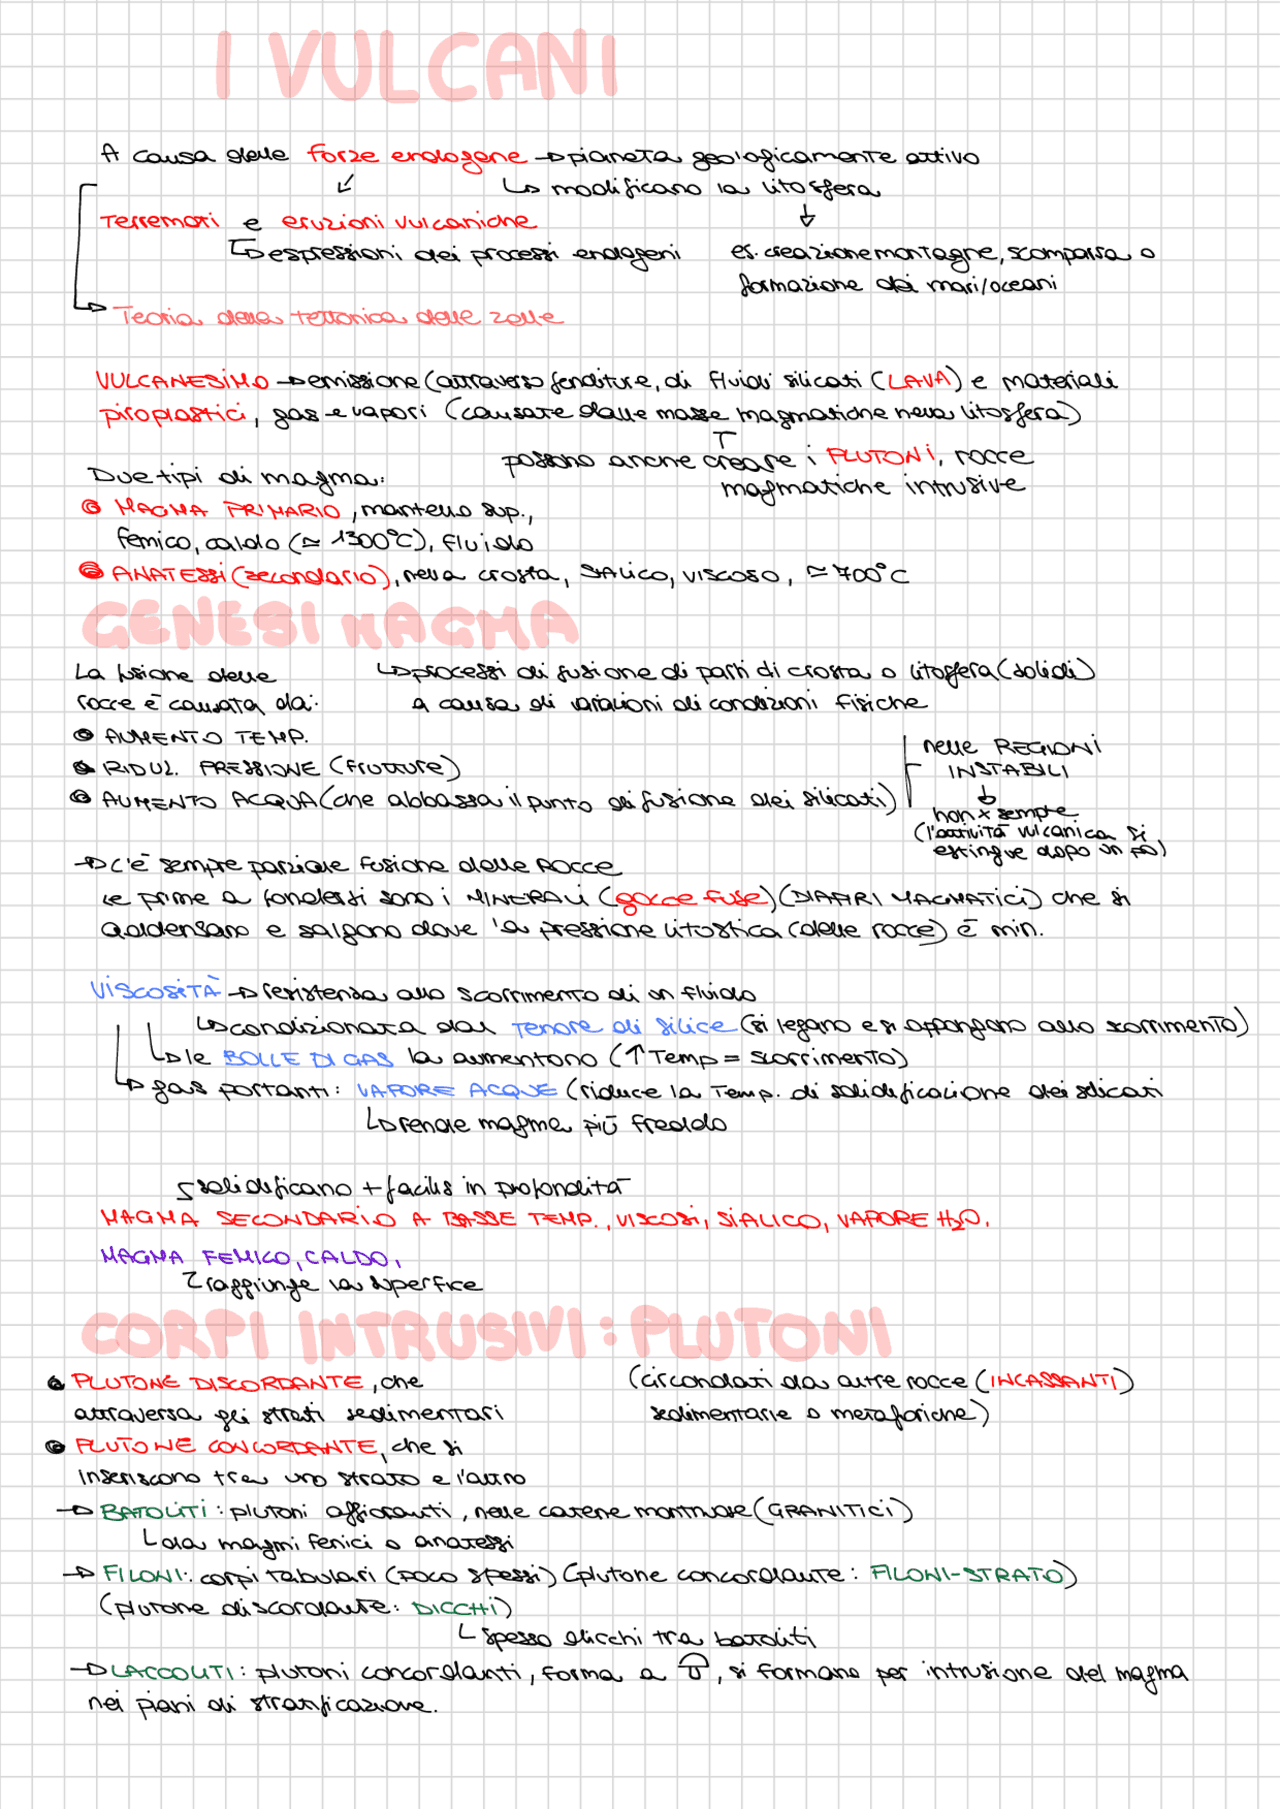 I VULCANI
A causa delle forze endogene → pianeta geologicamente attivo
↳ modificano la litosfera
Terremoti e eruzioni vulcaniche
↳ espressioni dei processi endogeni
es. creazione montagne, scomparsa o
formazione di mari/oceani
Teoria della tettonica delle zolle
VULCANESIMO → emissione (attraverso fenditure, di fluidi silicati (LAVA) e materiali
piroplastici, gas e vapori (causate dalle masse magmatiche nella litosfera)
possono anche creare i PLUTONI, rocce
magmatiche intrusive
Due tipi di magma:
MAGMA PRIMARIO, mantello sup.,
femico, caldo (≃ 1300°C), fluido
ANATESSI (secondario), nella crosta, SIALICO, VISCOSO, ≃ 700°C
GENESI MAGMA
↳ processi di fusione di parti di crosta o litosfera (solidi)
a causa di variazioni di condizioni fisiche
La fusione delle
rocce è causata da:
AUMENTO TEMP.
RIDUZ. PRESSIONE (fratture)
AUMENTO ACQUA (che abbassa il punto di fusione dei silicati)
nelle REGIONI
INSTABILI
↓
non x sempre
(l'attività vulcanica si
estingue dopo un po)
→ C'è sempre parziale fusione delle rocce
le prime a fondersi sono i MINERALI (gocce fuse) (DIAPIRI MAGMATICI) che si
addensano e salgono dove la pressione litostica (delle rocce) è min.
VISCOSITÀ → resistenza allo scorrimento di un fluido
↳ condizionata dal tenore di silice (si legano e si oppongono allo scorrimento)
↳ le BOLLE DI GAS la aumentono (↑ Temp = scorrimento)
↳ gas portanti: VAPORE ACQUE (riduce la Temp. di solidificazione dei silicati
↳ rende magma più freddo
solidificano + facilis in profondità
MAGMA SECONDARIO A BASSE TEMP., VISCOSI, SIALICO, VAPORE H₂O.
MAGMA FEMICO, CALDO,
raggiunge la superfice
CORPI INTRUSIVI: PLUTONI
PLUTONE DISCORDANTE, che
attraversa gli strati sedimentari
(circondati da altre rocce (INCASSANTI)
sedimentarie o metaforiche)
PLUTONE CONCORDANTE, che si
inseriscono tra uno strato e l'altro
→ BATOLITI: plutoni affioranti, nelle catene montuose (GRANITICI)
↳ da magmi fenici o anatessi
→ FILONI: corpi tabulari (poco spessi) (plutone concordante: FILONI-STRATO)
(plutone discordante: DICCHI)
↳ spesso dicchi tra batoliti
→ LACCOLITI: plutoni concordanti, forma a , si formano per intrusione del magma
nei piani di stratificazione.